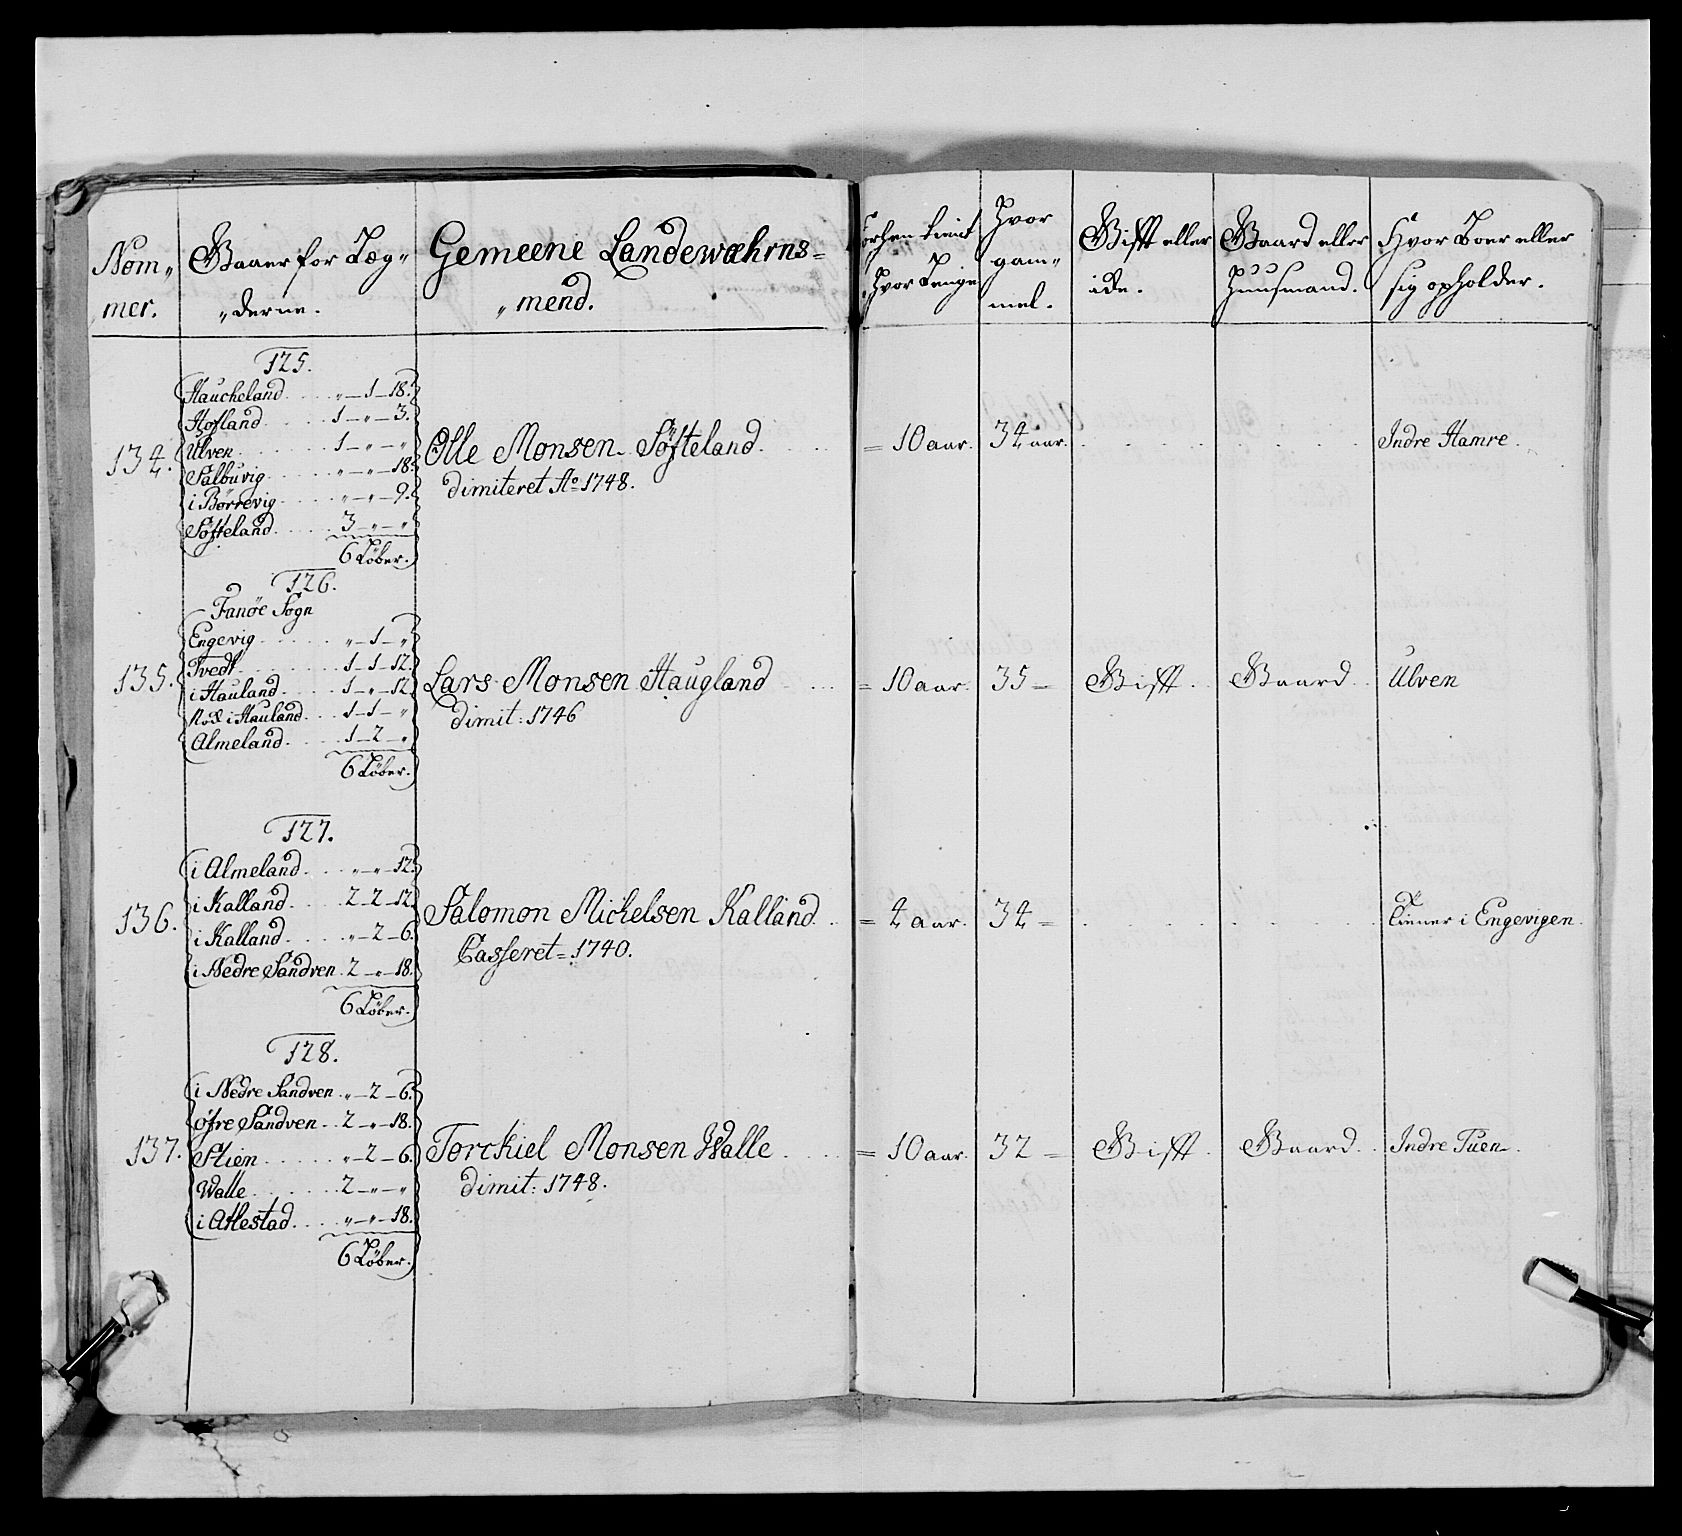 Nom„ mer.
Gaaer for Læg„ „derne.
Gemeene Landewæhrns= „mend.
forhen tient Hvor Lenge
Hvor gam„ mel.
Gifft eller ide.
Gaard eller Huusmand.
Hvor Boer eller sig opholder.
125.
Haucheland. „ — 1 — 18.
Hofland. 1 — „ — 3.
Ulven. 1 — „ — „
Salbuvig. „ — „ — 18.
i Børrevig „ — „ — 9.
Søfteland. 3 — „ — „
6 Løber.
134. Olle Monsen Søfteland. = 10 aar. 34 aar. Indre Hamre.
dimiteret Ao 1748.
126.
Fanöe Sogn
Engevig. „ — 1 — „
Tvedt. 1 — 1 — 12.
i Hauland. 1 — „ — 12
Nok i Hauland. 1 — 1 — „
Almeland. 1 — 2 — „
6 Løber.
135. Lars Monsen Haugland = 10 aar. 35 — Gifft. Gaard. Ulven
dimit: 1746
127.
i Almeland. „ — „ — 12.
i Kalland. 2 — 2 — 12.
i Kalland. „ — 2 — 6.
i Nedre Sandven. 2 — „ — 18.
6 Løber.
136. Salomon Michelsen Kalland. = 4 aar. 34 = tiener i Engevigen.
Casseret = 1740.
128.
i Nedre Sandven. „ — 2 — 6.
øfre Sandven. 2 — „ — 18.
Stien „ — 2 — 6.
Walle. 2 — „ — „
i Atlestad. „ — „ — 18.
6 Løber.
137. Torckiel Monsen Walle = 10 aar. 32 = Gifft. Gaard. Indre Tuen.
dimit: 1748.